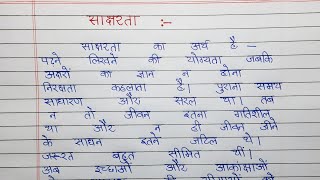 साक्षरता :-
साक्षरता का अर्थ है -
पढ़ने लिखने की योग्यता जबकि
अक्षरों का ज्ञान न होना
निरक्षता कहलाता है। पुराना समय
साधारण और सरल था। तब
न तो जीवन इतना गतिशील
था और न ही जीवन जीने
के साधन इतने जटिल थे।
जरूरत बहुत सीमित थीं।
अब इच्छाओं और आकांक्षाओं